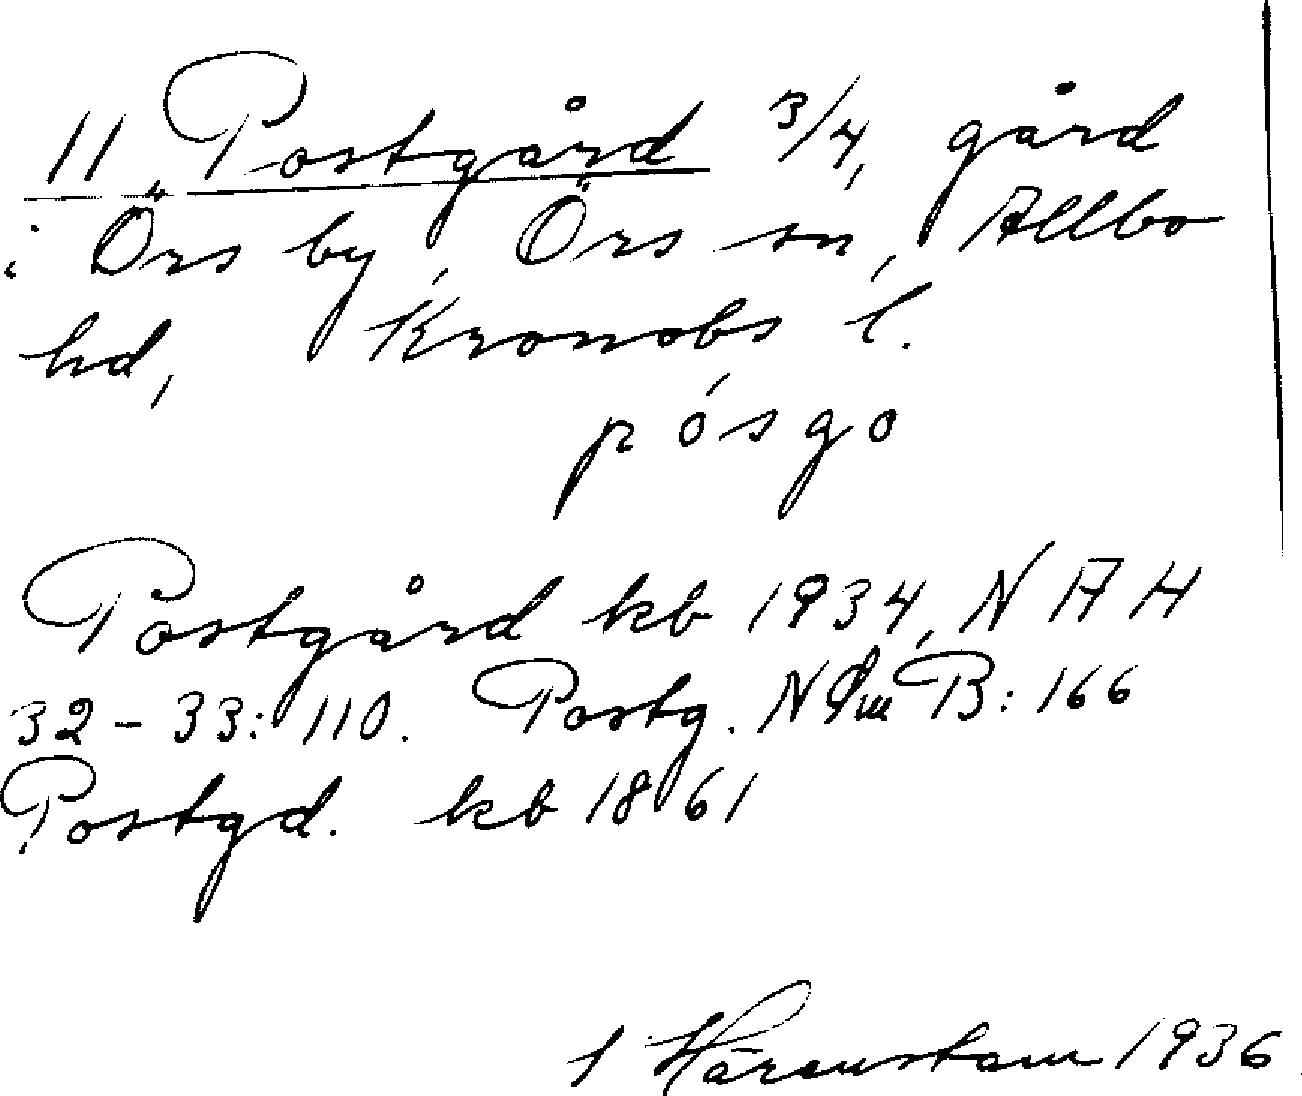 11 Postgård 3/4, gård
i Örs by, Örs sn, Allbo
hd, Kronobs l.
pósgo
Postgård kb 1934, N A H
32-33: 110. Postg. B: 166
Postgd. kb 1861
Härenstam 1936